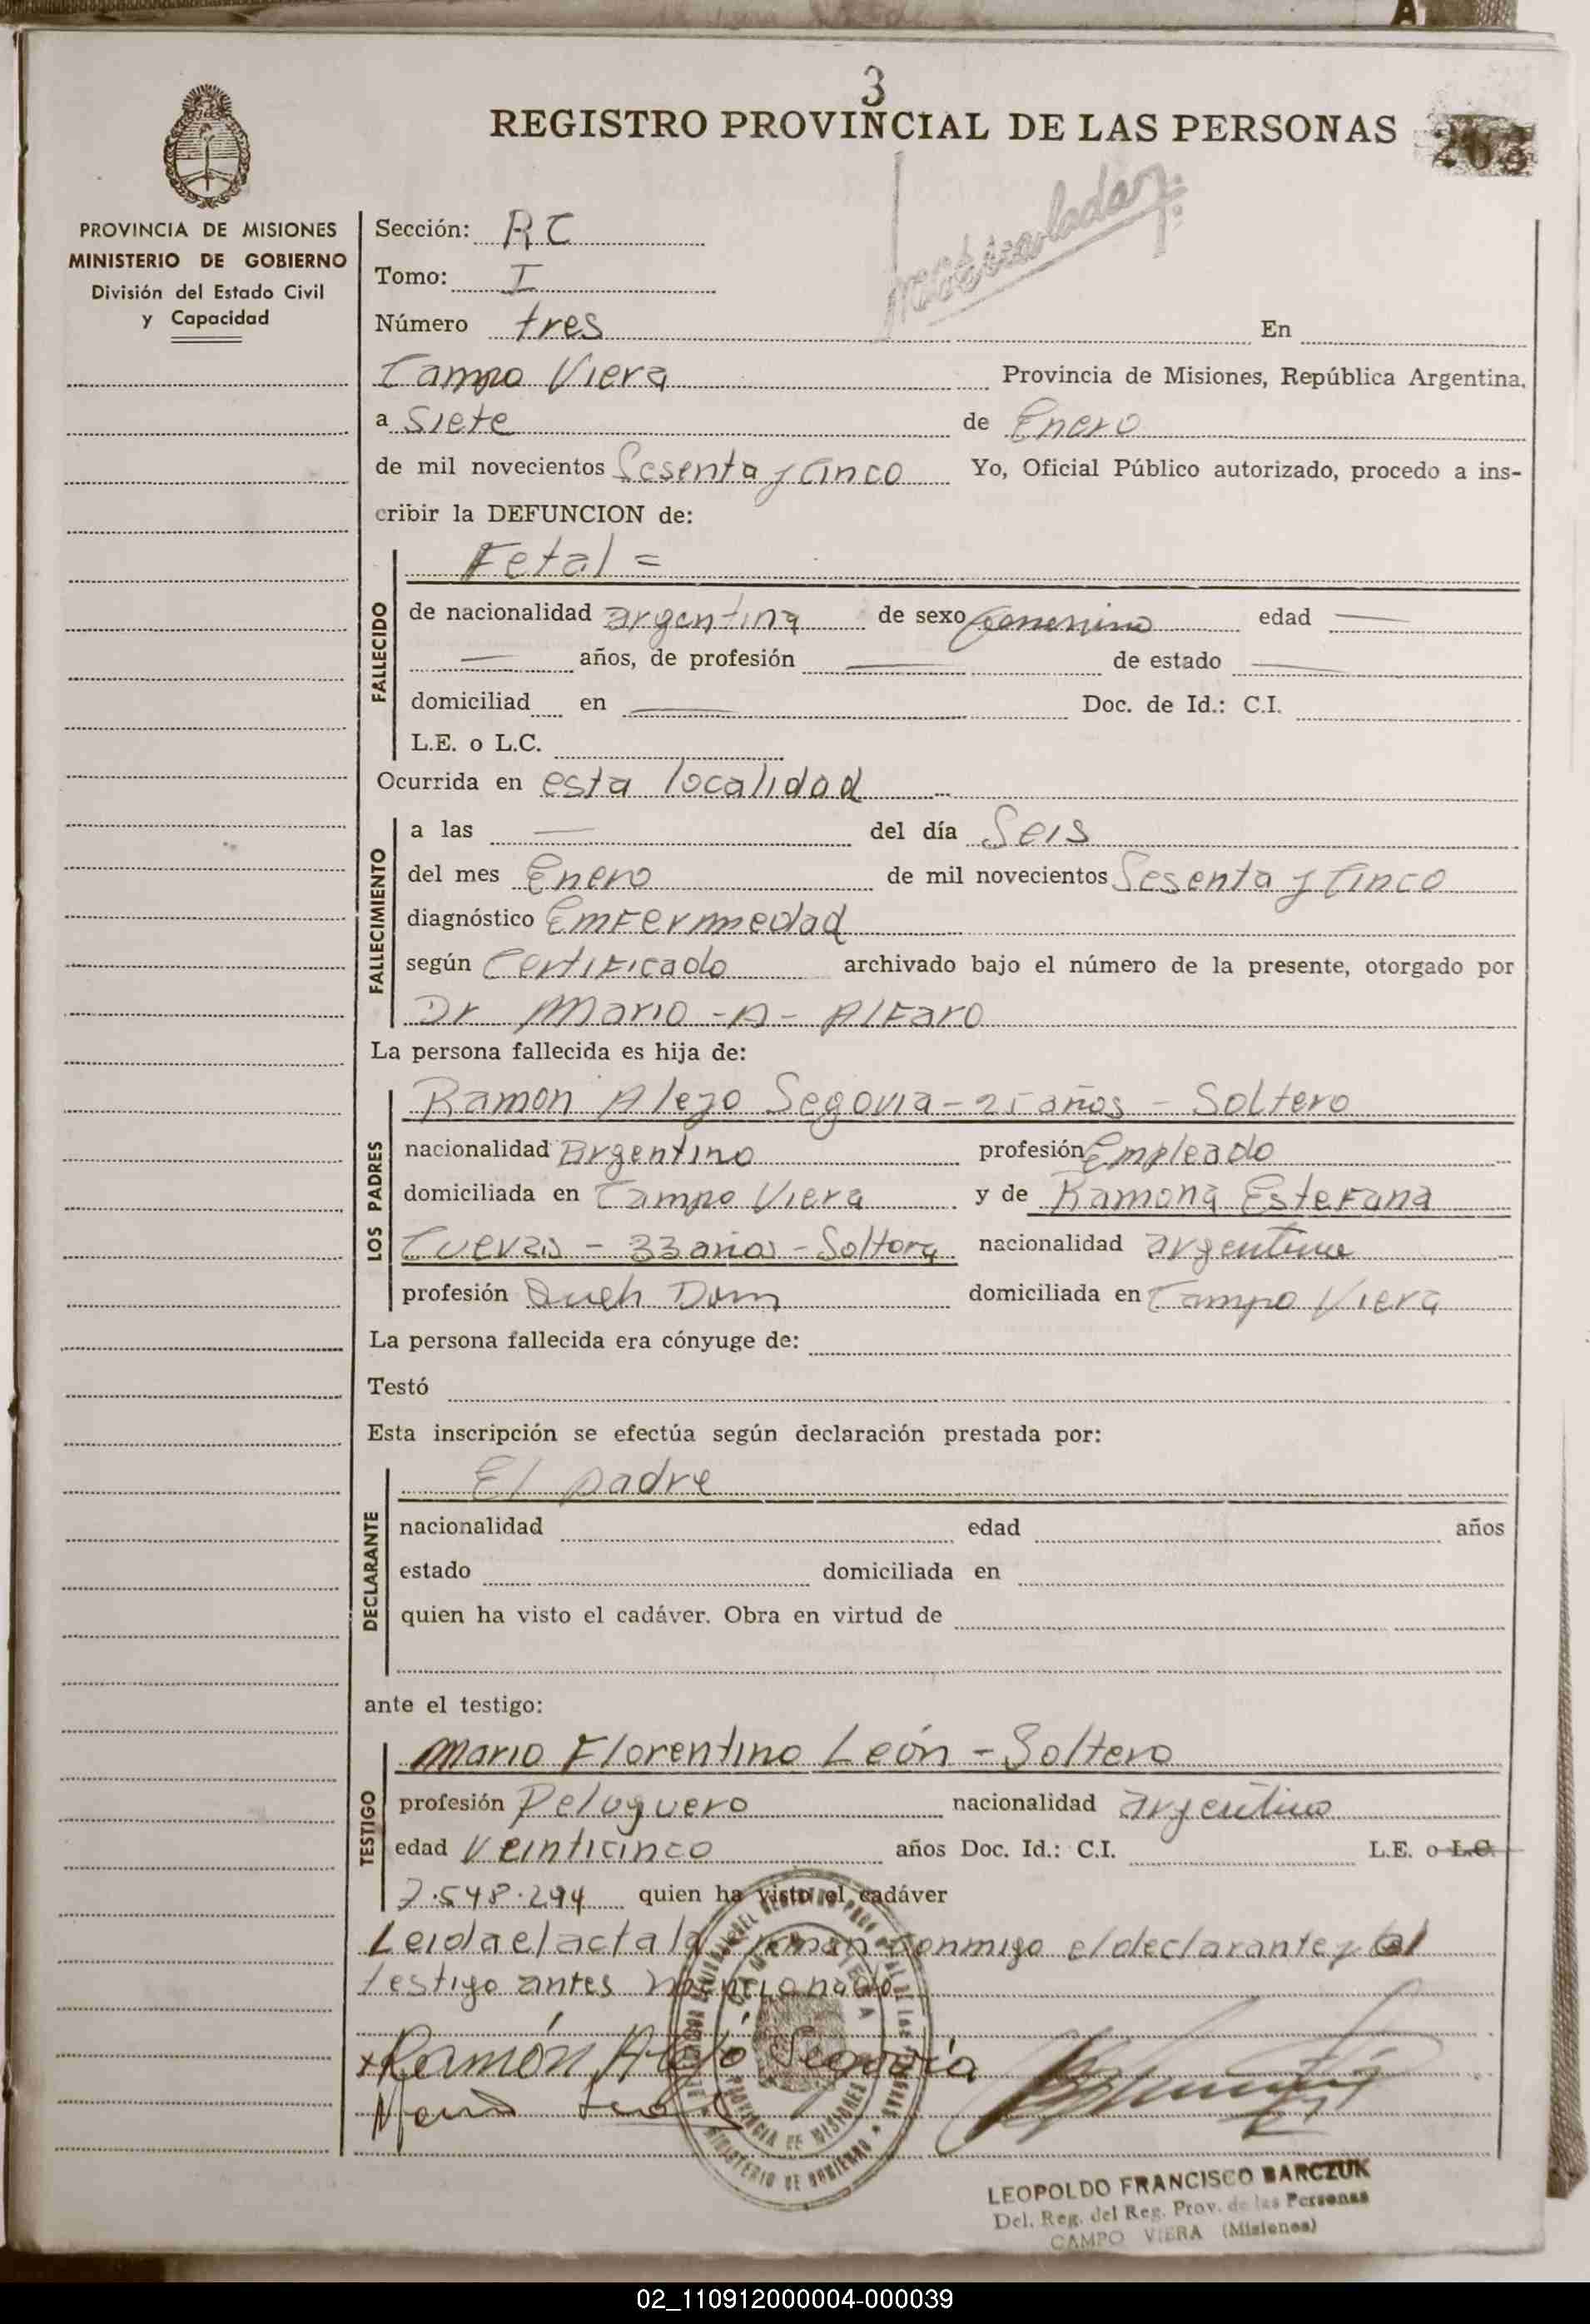 3
REGISTRO PROVINCIAL DE LAS PERSONAS
203
PROVINCIA DE MISIONES
MINISTERIO DE GOBIERNO
División del Estado Civil
y Capacidad
Sección: R C
Tomo: I
Número tres En
Campo Viera Provincia de Misiones, República Argentina,
a Siete de Enero
de mil novecientos Sesenta y Cinco Yo, Oficial Público autorizado, procedo a ins-
cribir la DEFUNCION de:
FALLECIDO
Fetal =
de nacionalidad argentina de sexo femenino edad —
— años, de profesión — de estado —
domiciliad en — Doc. de Id.: C.I.
L.E. o L.C.
Ocurrida en esta localidad
FALLECIMIENTO
a las — del día Seis
del mes Enero de mil novecientos Sesenta y Cinco
diagnóstico Emfermedad
según Certificado archivado bajo el número de la presente, otorgado por
Dr Mario - A - Alfaro
La persona fallecida es hija de:
LOS PADRES
Ramon Alejo Segovia - 25 años - Soltero
nacionalidad Argentino profesión Empleado
domiciliada en Campo Viera y de Ramona Estefana
Cuevas - 33 años - Soltera nacionalidad argentina
profesión Queh Dom domiciliada en Campo Viera
La persona fallecida era cónyuge de:
Testó
Esta inscripción se efectúa según declaración prestada por:
DECLARANTE
El padre
nacionalidad edad años
estado domiciliada en
quien ha visto el cadáver. Obra en virtud de
ante el testigo:
TESTIGO
Mario Florentino León - Soltero
profesión Peluquero nacionalidad argentino
edad Veinticinco años Doc. Id.: C.I. L.E. o L.C.
7.548.294 quien ha visto el cadáver
Leida el acta la firman conmigo el declarante y el
testigo antes mencionado
Ramón Alejo Segovia
PROVINCIA DE MISIONES
MINISTERIO DE GOBIERNO
LEOPOLDO FRANCISCO BARCZUK
Del. Reg. del Reg. Prov. de las Personas
CAMPO VIERA (Misiones)
02_110912000004-000039